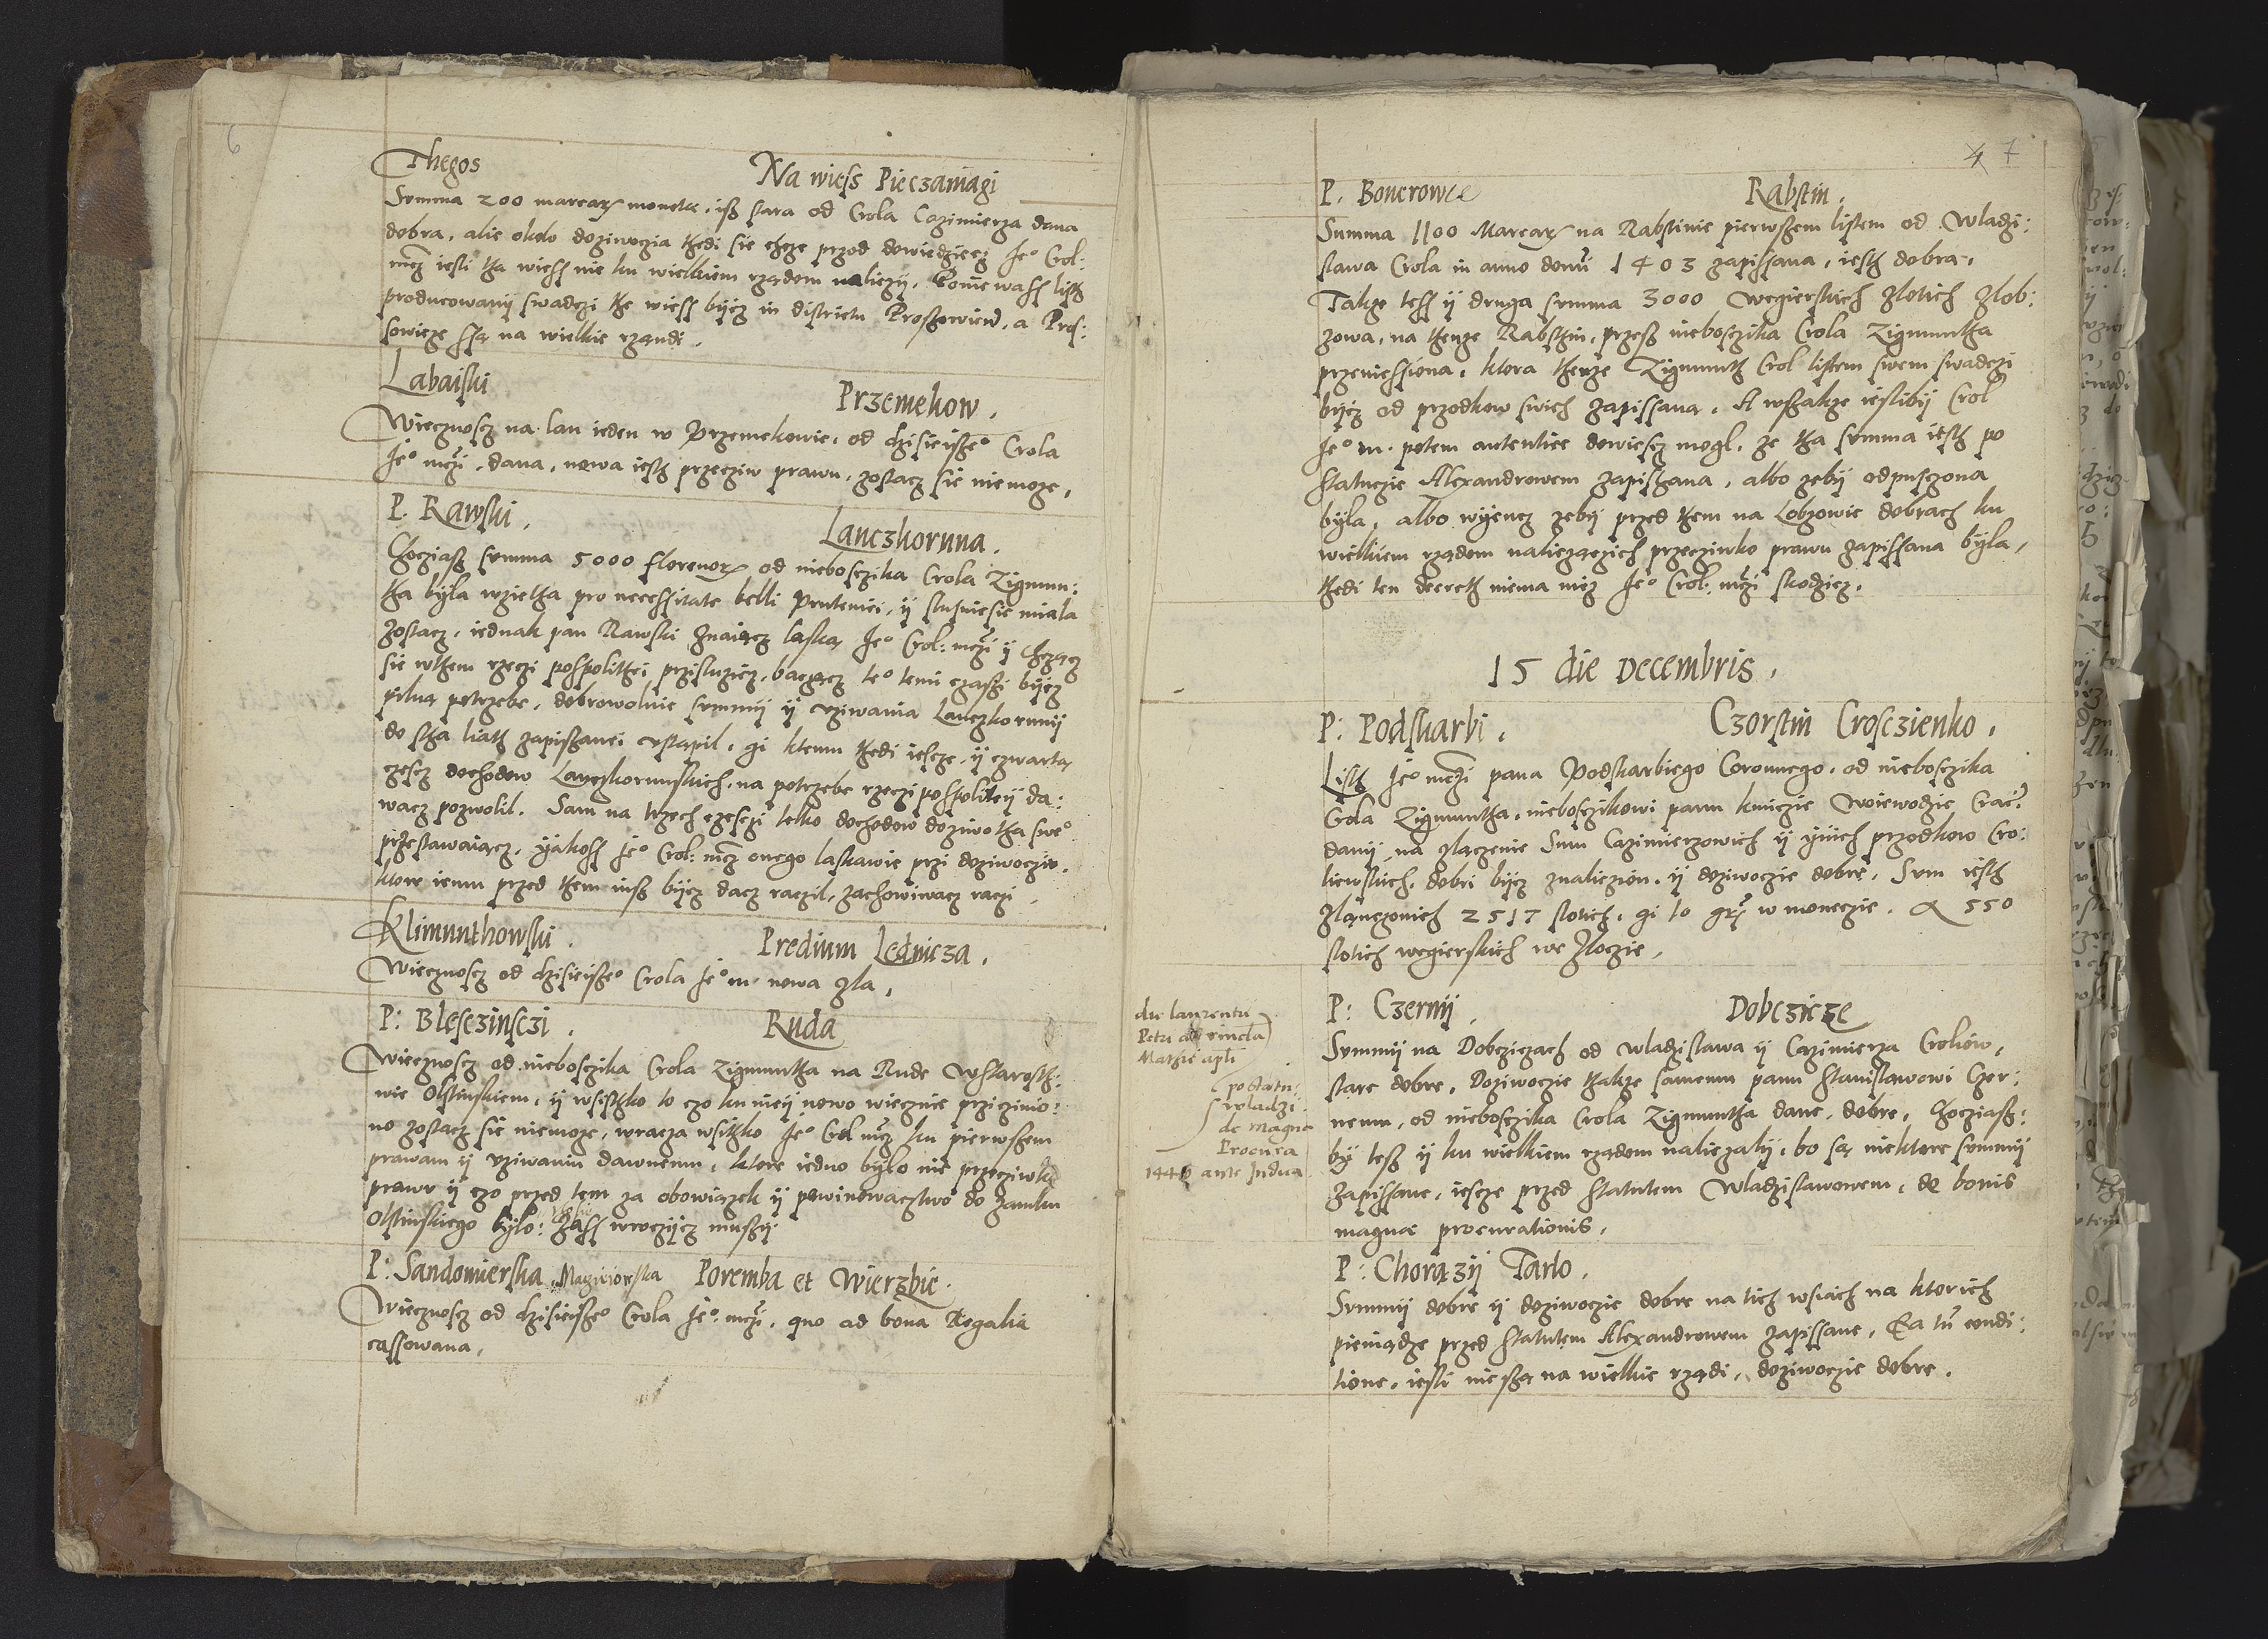 6
Thegos Na wiess Pieczaniagi
Summa 200 marcar monetae, isz stara od Crola Cazimierza dana
dobra, alie okolo doziwoczia thedi sie chcze przod dowiedziecz Je° Crol:
mcz iesli tha wiess nie ku wielkiem rządom naliezy, Poniewass listh
producowany swadczi the wiess bycz in districtu Proszoviensi, a Pros:
sowicze są na wielkie rządi.
Labaiski Przemekow.
Wiecznoscz na lan ieden w Przemekowie, od dzisieisze° Crola
Je° mczi, dana, nowa iesth przecziw prawu, zostacz sie niemoze,
P. Rawski. Lanczkorunna.
Chocziasz summa 5000 florenor od nieboszika Crola Zigmun:
tha byla wzietha pro necessitate belli Prutenici, y slusnie sie miala
zostacz, iednak pan Rawski znaiącz laską Je° Crol: mczi y chcząc
sie wthem rzeczi pospolithei przisluzicz, baczącz te° temu czassi bycz
pilną potrzebe, dobrowolnie summy y uziwania Lanczkoruny
do stha liath zapiszanei ustąpil, gi ktemu thedi iescze, y czwartą
czescz dochodow Lanczkorunskich, na potrzebe rzeczi pospolitey da:
wacz pozwolil. Sam na trzech czesczi telko dochodow doziwotha swe°
przestawaiącz, yakoss Je° Crol: mcz onego laskawie przi doziwocziu,
ktore iemu przed them iusz bycz dacz raczil, zachowiwacz raczi.
Klimunthowski. Predium Lednicza.
Wiecznoscz od dzisieisze° Crola Je° m. nowa zla,
P: Blesczinsczi. Ruda
Wiecznoscz od nieboszika Crola Zigmuntha na Rude wstarosth:
wie Olstinskiem, y wsisthko to czo ku niey nowo wiecznie prziczinio:
no zostacz sie niemoze, wracza wsitko Je° Crol mcz ku pierwszem
prawam y uziwaniu dawnemu, ktore iedno bylo nie przecziwko
prawu y czo przed tem za obowiązek y powinowacztwo do zamku
Olstinskiego bylo: zass wroczycz muszy
P: Sandomierska Macziiowska Poremba et Wierzbie.
Wiecznoscz od dzisieisze° Crola Je°. mczi, quo ad bona Regalia
cassowana,
4 7
P. Bonerowie Rabstin.
Summa 1100 Marcar na Rabstinie pierwszem listem od Wladzi:
slawa Crola in anno domi 1403 zapissana, iesth dobra,
Takze tess y druga summa 3000 wegierskich zlotich zlob:
zowa, na thenze Rabsthin, przesz nieboszika Crola Zigmuntha
przeniessiona, ktora thenze Zigmunth Crol listem swem swadczi
bycz od przodkow swich zapissaną. A wszakze iesliby Crol
Je° m. potem autentice dowiescz mogl, ze tha summa iesth po
statuczie Alexandrowem zapiszana, albo zeby odpusczona
byla, albo wyencz zeby przed them na Lobzowie dobrach ku
wielkiem rządom naliezączich przecziwko prawu zapissana byla,
thedi ten decreth niema nicz Je° Crol: mczi skodzicz.
15 die Decembris.
P: Podskarbi. Czorstin Crosczienko.
Listh Je° mczi pana Podskarbiego Coronnego, od nieboszika
Crola Zigmuntha, nieboszikowi panu kmiczie woiewodzie Crac:
dany, na zlączenie Sum Cazimierzowich y ynich przodkow Cro:
liewskich, dobri bycz znaliezion, y doziwoczie dobre, Sum iesth
zlączonich 2517 slotich, gi to grz w moneczie. A 550
slotich wegierskich we zloczie,
P: Czerny. Dobczicze
Summy na Dobcziczach od Wladzislawa y Cazimierza Croliow,
stare dobre, Doziwoczie thakze samemu panu Stanislawowi Czer:
nemu, od nieboszika Crola Zigmuntha dane, dobre, Choczias:
by tesz y ku wielkiem rządom naliezaly, bo są niektore summy
zapissane, iescze przed statutem Wladzislawowem, de bonis
magnae procurationis.
die laurentii
Petri ad vincla
Mathie apli
po statu:
wladzi:
de Magna
Procura
1440 ante Indua
P: Chorązy Tarlo.
Summy dobre y doziwoczie dobre na tich wsiach na ktorich
pieniądze przed statutem Alexandrowem zapissane, Ea tn condi:
tione, iesli nie są na wielkie rządi, doziwoczie dobre.